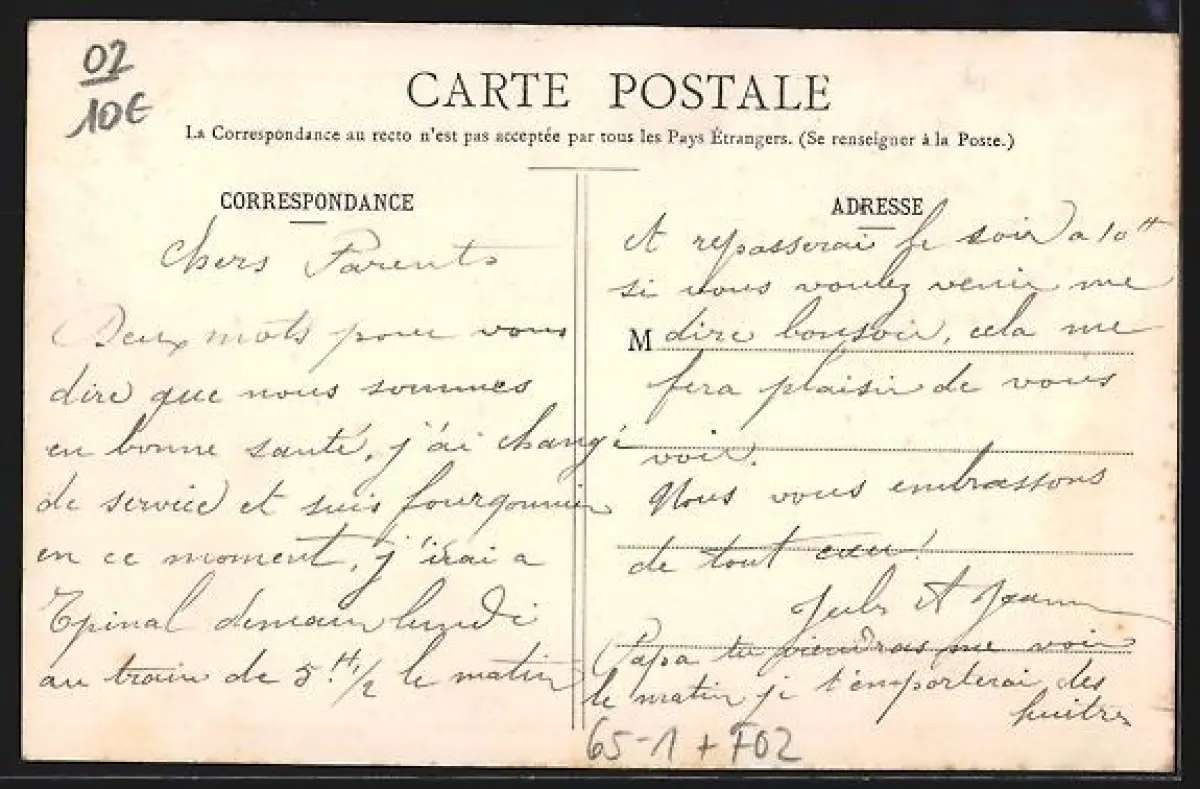 02
10€
CARTE POSTALE
La Correspondance au recto n'est pas acceptée par tous les Pays Étrangers. (Se renseigner à la Poste.)
CORRESPONDANCE
Chers Parents
Deux mots pour vous
dire que nous sommes
en bonne santé, j'ai changé
de service et suis fourgonnier
en ce moment, j'irai a
Epinal demain lundi
au train de 5H 1/2 le matin
ADRESSE
et repasserai le soir a 10H
si vous voulez venir me
M dire bonsoir, cela me
fera plaisir de vous
voir.
Nous vous embrassons
de tout cœur!
Jules et Jeanne
Papa tu viendras me voir
le matin je t'emporterai des
huitres
65-1 + F02